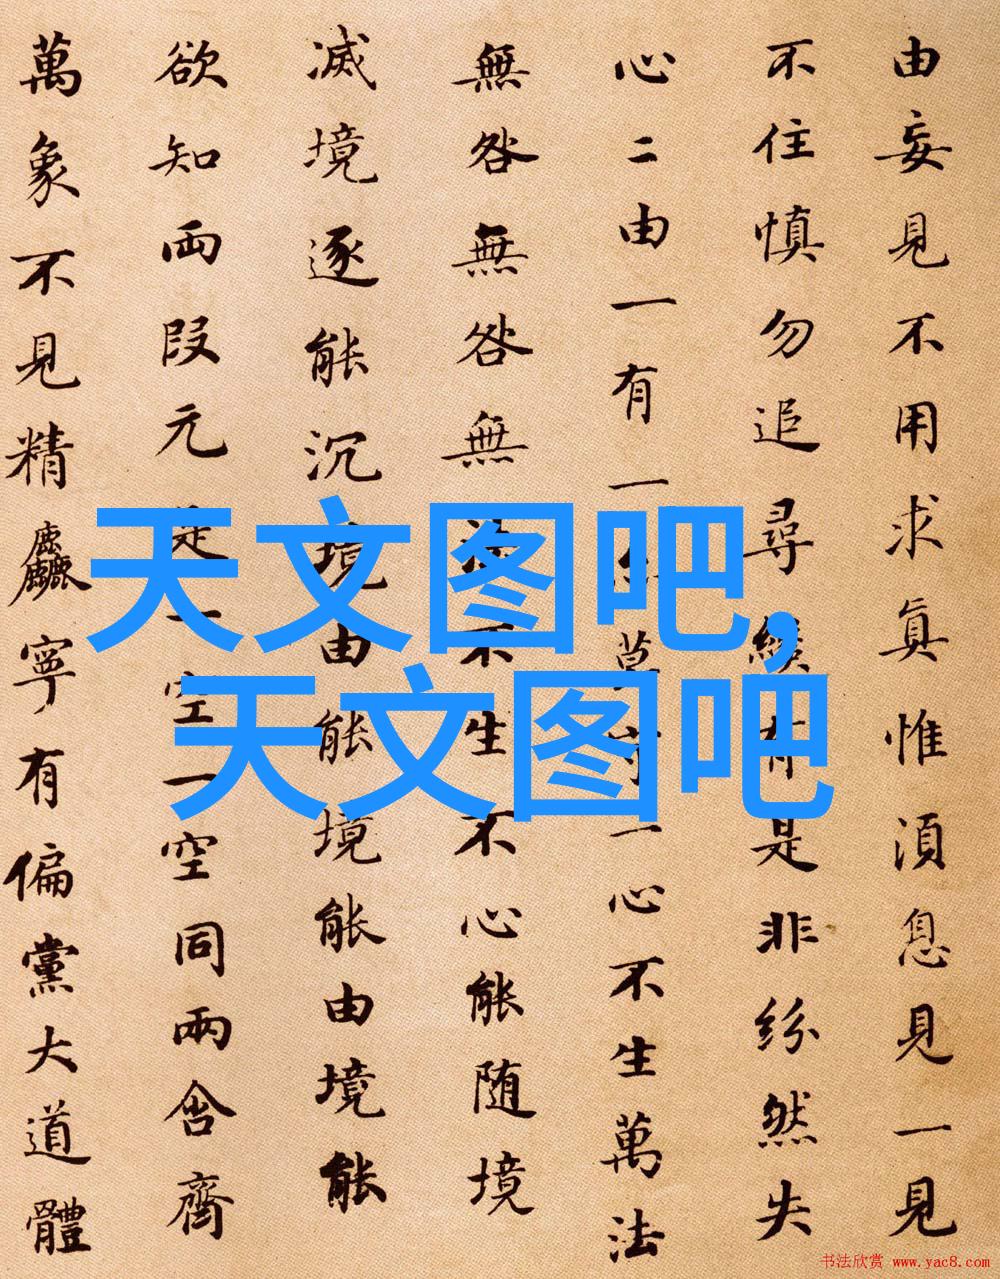 由妄見不用求真惟湏息見一見
不住慎勿追尋有是非紛然失
心二由一有一莫守一心不生萬法
無咎無咎無不生不心能随境
滅境逐能沉境由能境能由境能
欲知両段元是一空一空同兩含齊
萬象不見精麤寧有偏黨大道體
天文图吧,
天文图吧
书法欣赏 www.yac8.com